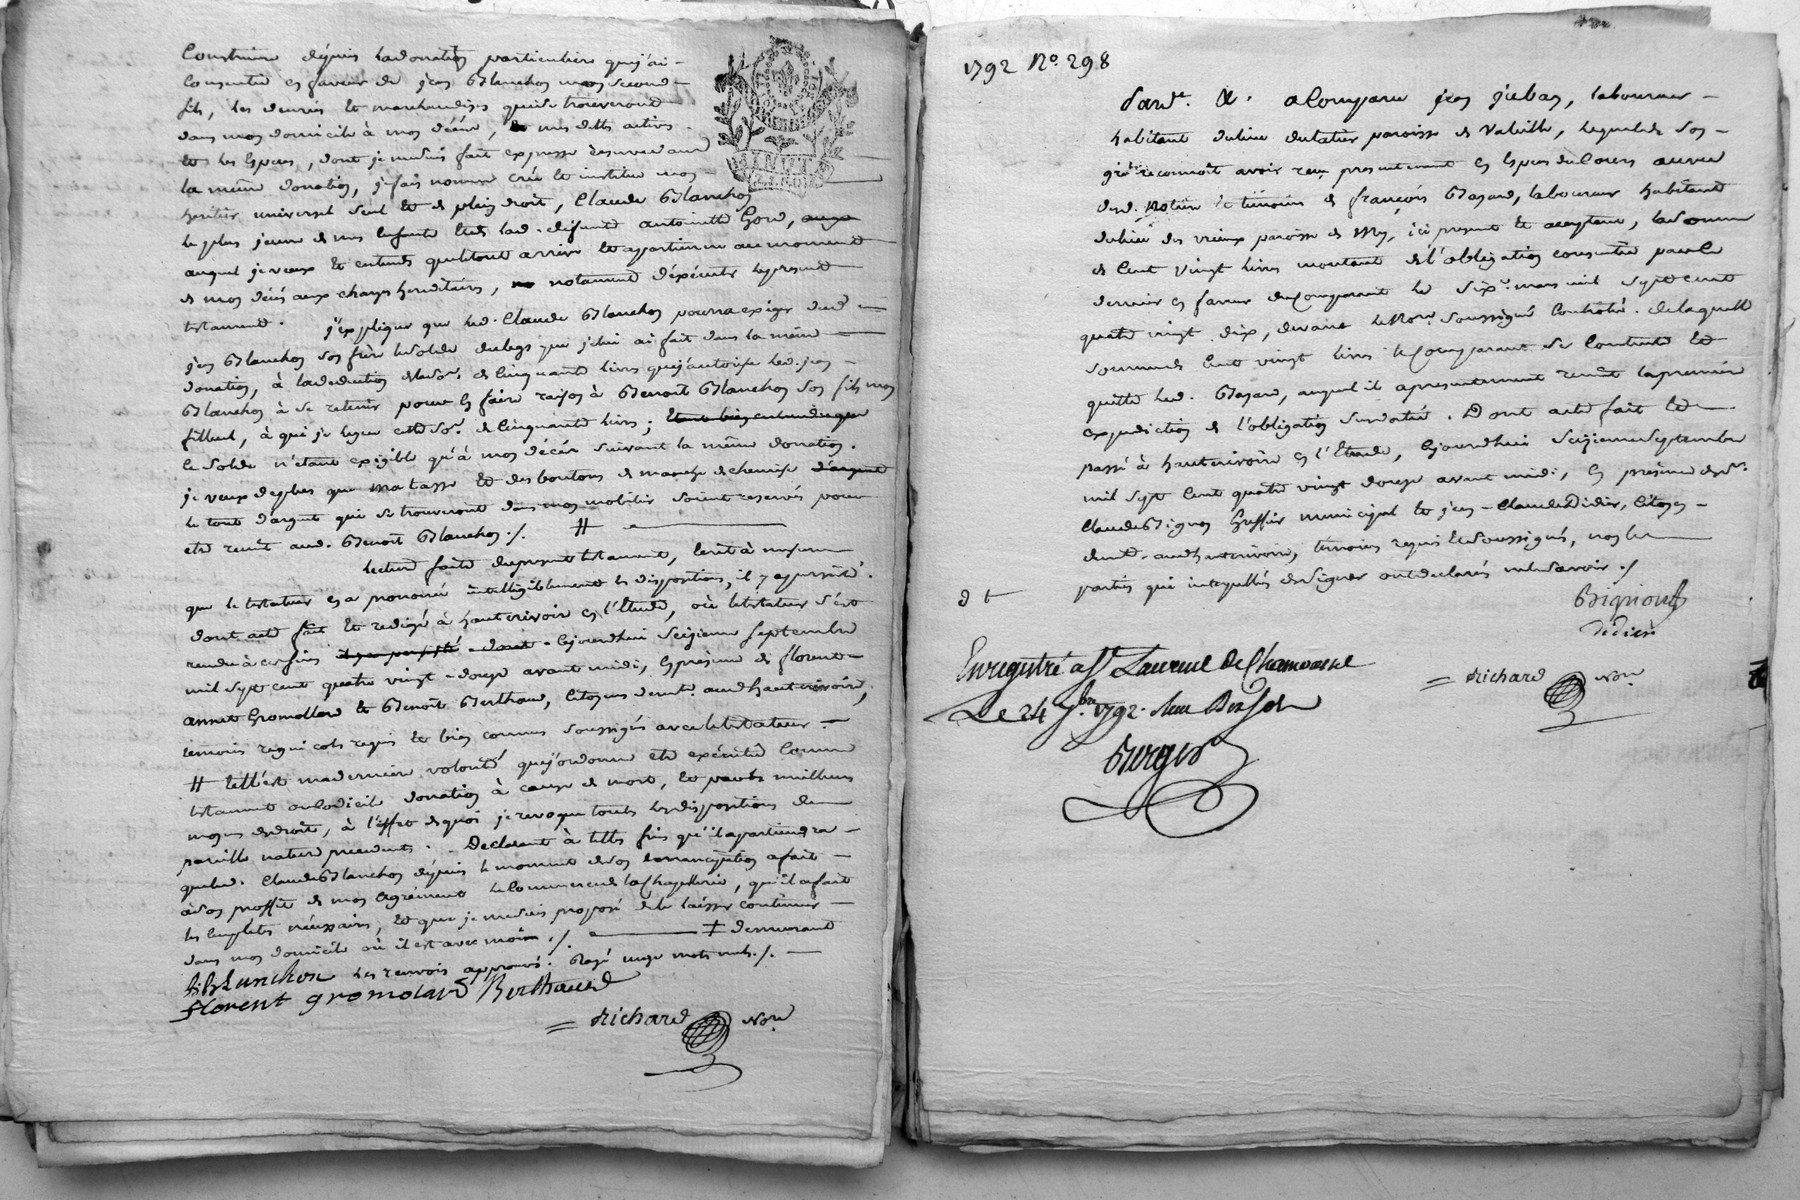 Construire depuis la donation particuliere que j'ai
consentie en faveur de jean Blanchon mon second
fils, les denrées et marchandises qui se trouveront
dans mon domicile à mon décès, mes dettes actives
et les especes, dont je me suis fait expresse réserve dans
la même donation, je fais nomme crée et institue mon
heritier universel seul et de plein droit, Claude Blanchon
le plus jeune de mes enfants et de lad. défunte antoinette Gord,
auquel je veux et entends que le tout arrive et appartienne au moment
de mon décès aux charges hereditaires, notament d'éxécuter le present
testament. j'explique que led. Claude Blanchon pourra exiger dud.
jean Blanchon son frère le solde du legs que je lui ai fait dans la même
donation, à la deduction de la so.e de cinquante livres que j'autorise led. jean
Blanchon à se retenir pour en faire raison à Benoît Blanchon son fils mon
filleul, à qui je legue cette so.e de cinquante livres;
le solde n'étant exigible qu'à mon décès suivant la même donation.
je veux de plus que ma tasse et des boutons de manche de chemise d'argent
le tout d'argent qui se trouveront dans mon mobilier soient reservés pour
etre remis aud. Benoît Blanchon ./. #
Lecture faite du present testament, écrit à mesure
que le testateur en a prononcé intelligiblement les dispositions, il y a persisté.
dont acte fait et redigé à hauterivoire en l'Etude, où le testateur s'est
rendu à ces fins cejourdhui seizieme septembre
mil sept cent quatre vingt-douze avant midi, en presence de florent
annet Gromollard et Benoît Berthaud, Citoyens demt. aud. hauterivoire,
temoins requis et bien connus soussignés avec le testateur
# telle est ma derniere volonté que j'ordonne etre exécutée comme
testament ou codicile donation à cause de mort, et par les meilleurs
moyens de droit, à l'effet de quoi je revoque toutes les dispositions de
pareille nature precedentes. Declarant à telles fins qu'il apartiendra
que led. Claude Blanchon depuis le moment de son émancipation a fait
à son proffit de mon agrément le commerce de la Chapellerie, qu'il a fait
les emplettes nécessaires, et que je me suis proposé de le laisser continuer
dans mon domicile où il est avec moi ./. ‡ demeurant
les renvois approuvés. Rayé onze mots nuls ./.
B. Blanchon
florent gromolard Berthaud
= Richard Nore
1792 No. 298
Pard.t &. a Comparu jean juban, laboureur
habitant du lieu du latier paroisse de Valeille, lequel de son
gré reconnoît avoir reçu presentement en especes de cours au vu
desd. Notaire et témoins de françois Bazard, laboureur habitant
du lieu des vieux paroisse de Mey, ici present et acceptant, la somme
de cent vingt livres montant de l'obligation consentie par le
dernier en faveur du comparant le six.e mars mil sept cent
quatre vingt dix, devant le Nore. soussigné Controlé. de laquelle
somme de cent vingt livres le comparant se contente et
quitte led. Bazard, auquel il a presentement remit la premiere
expediction de l'obligation susdatée. Dont acte fait et
passé à hauterivoire en l'Etude, cejourdhui seizieme septembre
mil sept cent quatre vingt douze avant midi, en presence de sr.
Claude Bignon Greffier municipal et jean-Claude Didier, Citoyen
demt. aud. hauterivoire, temoins requis et soussignés, non les
parties qui interpellées de signer ont declarés ne le savoir ./.
d t
Bignon
Didier
= Richard Nore
Enregistré a St. Laurent de Chamousset
Le 24 7bre 1792. Reçu Dix Sols
Berger